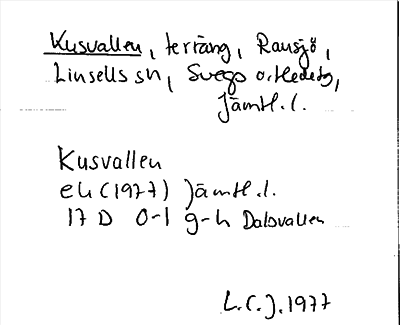 Kusvallen, terräng, Ransjö,
Linsells sn, Svegs o. Hede tg,
Jämtl. l.
Kusvallen
ek (1977) Jämtl. l.
17 D 0-1 g-h Dalsvallen
L.C.J. 1977